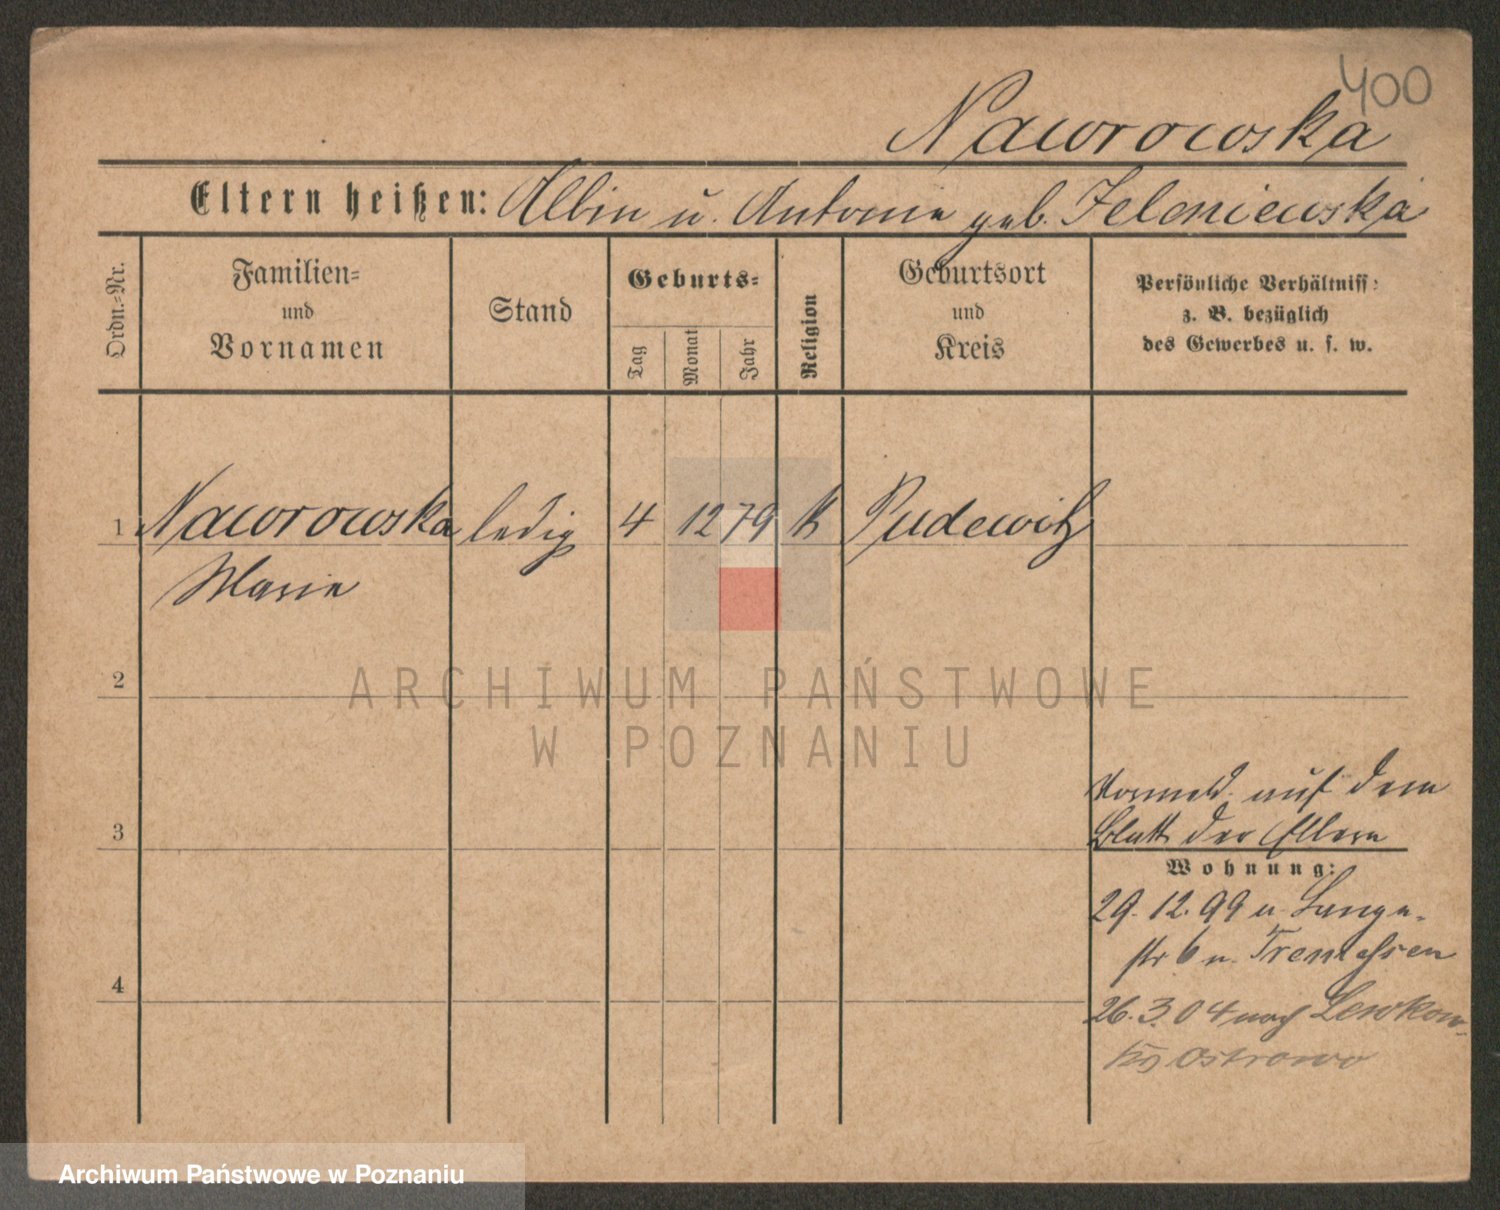 400
Naworowska
Eltern heißen: Albin u. Antonie geb. Jeloniewska
Ordn.-Nr.
Familien-
und
Vornamen
Stand
Geburts-
Tag
Monat
Jahr
Religion
Geburtsort
und
Kreis
Persönliche Verhältniss:
z. B. bezüglich
des Gewerbes u. s. w.
1 Naworowska ledig 4 12 79 K Pudewitz
Marie
2
3
Vormeld. auf dem
Blatt der Eltern
Wohnung:
29. 12. 99 u Lange-
str 6 n. Tremessen
4
26. 3. 04 nach Lewkow
Ostrowo
ARCHIWUM PAŃSTWOWE
W POZNANIU
Archiwum Państwowe w Poznaniu